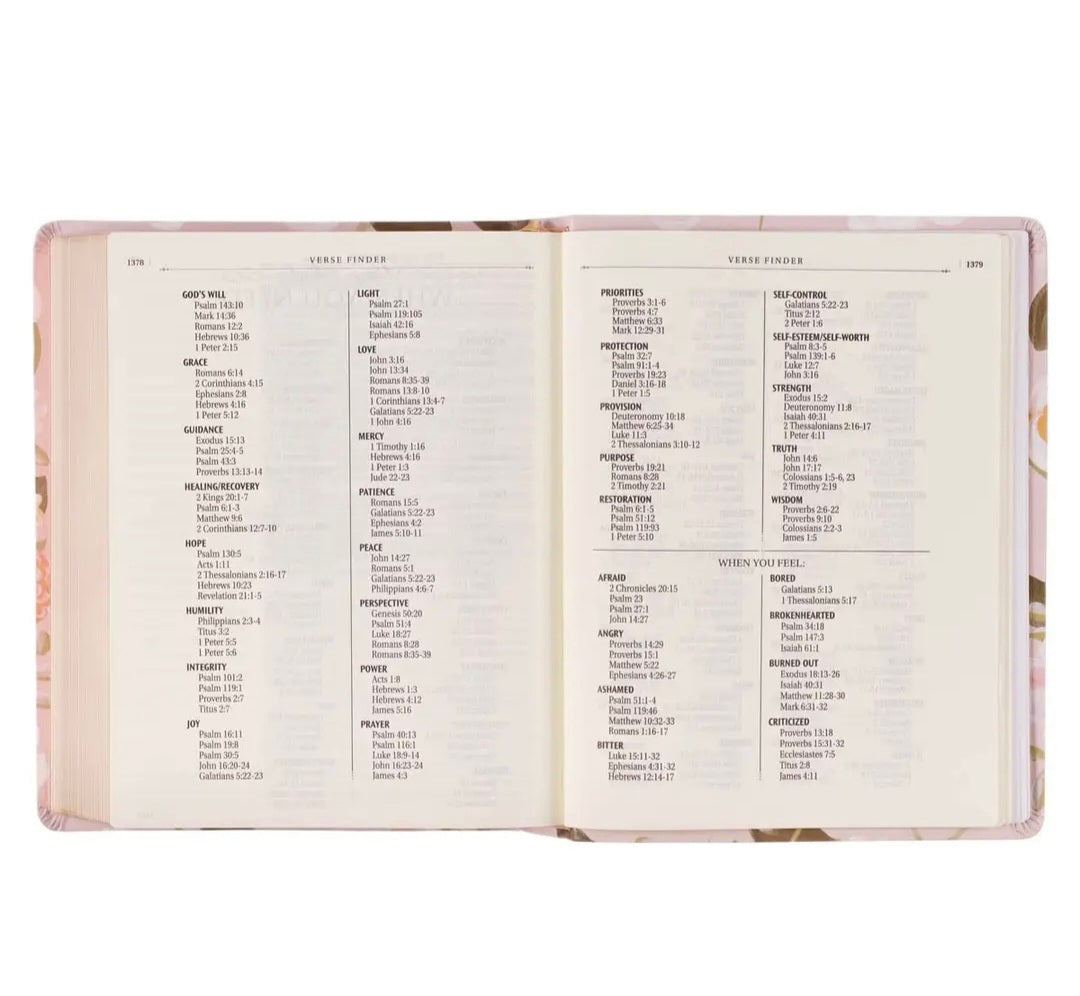 1378
VERSE FINDER
GOD'S WILL
Psalm 143:10
Mark 14:36
Romans 12:2
Hebrews 10:36
1 Peter 2:15
GRACE
Romans 6:14
2 Corinthians 4:15
Ephesians 2:8
Hebrews 4:16
1 Peter 5:12
GUIDANCE
Exodus 15:13
Psalm 25:4-5
Psalm 43:3
Proverbs 13:13-14
HEALING/RECOVERY
2 Kings 20:1-7
Psalm 6:1-3
Matthew 9:6
2 Corinthians 12:7-10
HOPE
Psalm 130:5
Acts 1:11
2 Thessalonians 2:16-17
Hebrews 10:23
Revelation 21:1-5
HUMILITY
Philippians 2:3-4
Titus 3:2
1 Peter 5:5
1 Peter 5:6
INTEGRITY
Psalm 101:2
Psalm 119:1
Proverbs 2:7
Titus 2:7
JOY
Psalm 16:11
Psalm 19:8
Psalm 30:5
John 16:20-24
Galatians 5:22-23
LIGHT
Psalm 27:1
Psalm 119:105
Isaiah 42:16
Ephesians 5:8
LOVE
John 3:16
John 13:34
Romans 8:35-39
Romans 13:8-10
1 Corinthians 13:4-7
Galatians 5:22-23
1 John 4:16
MERCY
1 Timothy 1:16
Hebrews 4:16
1 Peter 1:3
Jude 22-23
PATIENCE
Romans 15:5
Galatians 5:22-23
Ephesians 4:2
James 5:10-11
PEACE
John 14:27
Romans 5:1
Galatians 5:22-23
Philippians 4:6-7
PERSPECTIVE
Genesis 50:20
Psalm 51:4
Luke 18:27
Romans 8:28
Romans 8:35-39
POWER
Acts 1:8
Hebrews 1:3
Hebrews 4:12
James 5:16
PRAYER
Psalm 40:13
Psalm 116:1
Luke 18:9-14
John 16:23-24
James 4:3
VERSE FINDER
1379
PRIORITIES
Proverbs 3:1-6
Proverbs 4:7
Matthew 6:33
Mark 12:29-31
PROTECTION
Psalm 32:7
Psalm 91:1-4
Proverbs 19:23
Daniel 3:16-18
1 Peter 1:5
PROVISION
Deuteronomy 10:18
Matthew 6:25-34
Luke 11:3
2 Thessalonians 3:10-12
PURPOSE
Proverbs 19:21
Romans 8:28
2 Timothy 2:21
RESTORATION
Psalm 6:1-5
Psalm 51:12
Psalm 119:93
1 Peter 5:10
SELF-CONTROL
Galatians 5:22-23
Titus 2:12
2 Peter 1:6
SELF-ESTEEM/SELF-WORTH
Psalm 8:3-5
Psalm 139:1-6
Luke 12:7
John 3:16
STRENGTH
Exodus 15:2
Deuteronomy 11:8
Isaiah 40:31
2 Thessalonians 2:16-17
1 Peter 4:11
TRUTH
John 14:6
John 17:17
Colossians 1:5-6, 23
2 Timothy 2:19
WISDOM
Proverbs 2:6-22
Proverbs 9:10
Colossians 2:2-3
James 1:5
WHEN YOU FEEL:
AFRAID
2 Chronicles 20:15
Psalm 23
Psalm 27:1
John 14:27
ANGRY
Proverbs 14:29
Proverbs 15:1
Matthew 5:22
Ephesians 4:26-27
ASHAMED
Psalm 51:1-4
Psalm 119:46
Matthew 10:32-33
Romans 1:16-17
BITTER
Luke 15:11-32
Ephesians 4:31-32
Hebrews 12:14-17
BORED
Galatians 5:13
1 Thessalonians 5:17
BROKENHEARTED
Psalm 34:18
Psalm 147:3
Isaiah 61:1
BURNED OUT
Exodus 18:13-26
Isaiah 40:31
Matthew 11:28-30
Mark 6:31-32
CRITICIZED
Proverbs 13:18
Proverbs 15:31-32
Ecclesiastes 7:5
Titus 2:8
James 4:11